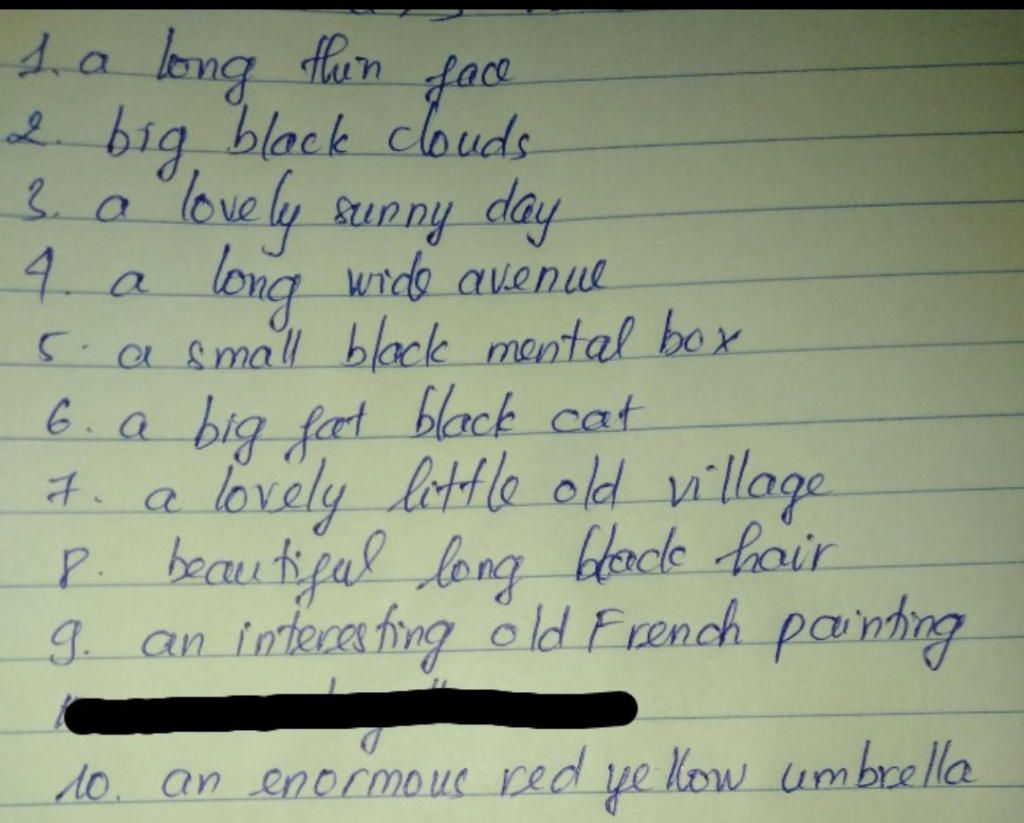 1. a long thin face
2. big black clouds
3. a lovely sunny day
4. a long wide avenue
5. a small black mental box
6. a big fat black cat
7. a lovely little old village
8. beautiful long black hair
9. an interesting old French painting
10. an enormous red yellow umbrella